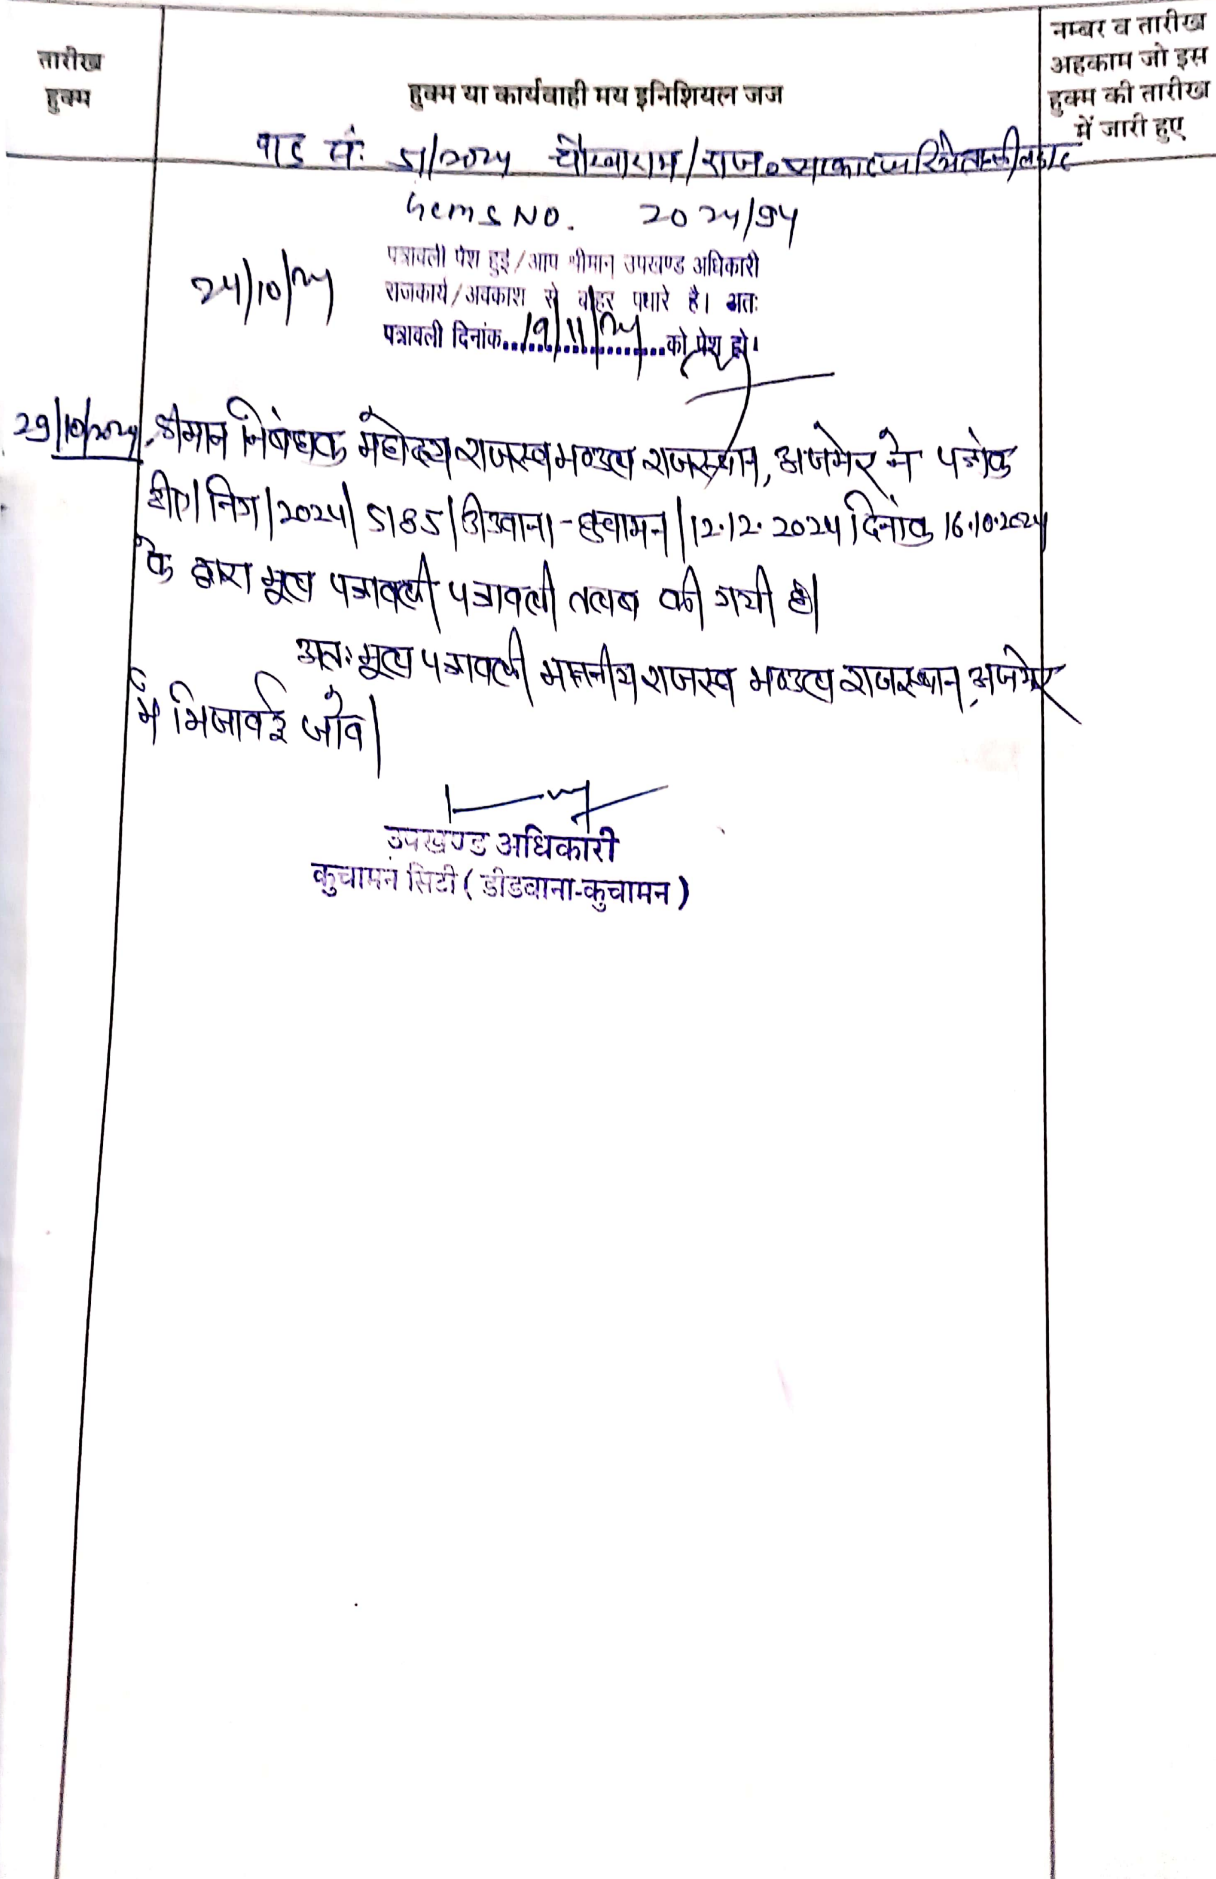 तारीख
हुक्म
हुक्म या कार्यवाही मय इनिशियल जज
नम्बर व तारीख
अहकाम जो इस
हुक्म की तारीख
में जारी हुए
वाद सं: 51/2024 चौखाराम/राज०
Gcms NO. 2024/94
24/10/24
पत्रावली पेश हुई/आप श्रीमान् उपखण्ड अधिकारी
राजकार्य/अवकाश से बाहर पधारे है। अतः
पत्रावली दिनांक..19/11/24..को पेश हो।
29/10/2024 श्रीमान निबंधक महोदय राजस्व मण्डल राजस्थान, अजमेर ने पत्रांक
निग/2024/5185/डीडवाना-कुचामन/12.12.2024 दिनांक 16.10.2024
के द्वारा मूल पत्रावली पत्रावली तलब की गयी है।
अतः मूल पत्रावली माननीय राजस्व मण्डल राजस्थान, अजमेर
में भिजावई जावें।
उपखण्ड अधिकारी
कुचामन सिटी (डीडवाना-कुचामन)